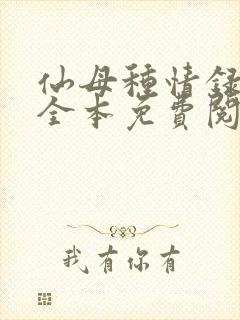 仙母種情録
全本免費閱
我有你有